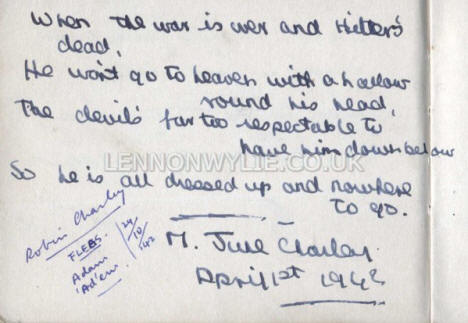 When the war is over and Hitler's
dead,
He won't go to heaven with a hallow
round his head,
The devil's far too respectable to
have him down below
So he is all dressed up and nowhere
to go.
LENNONWYLIE.CO.UK
M. June Charley
April 1st 1942
Robin Charley
FLEBS.
Adam
'Ad'em'
24/10/42